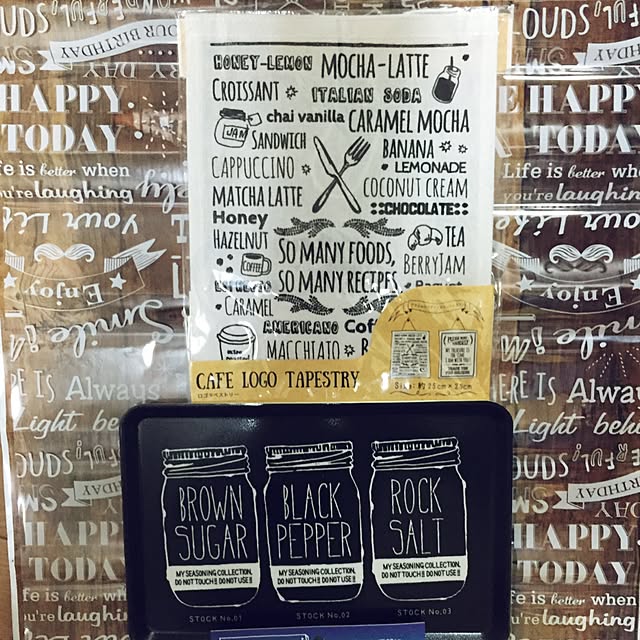 HONEY-LEMON MOCHA-LATTE
CROISSANT ITALIAN SODA
JAM chai vanilla CARAMEL MOCHA
SANDWICH BANANA
CAPPUCCINO LEMONADE
MATCHA LATTE COCONUT CREAM
Honey CHOCOLATE
HAZELNUT SO MANY FOODS, TEA
COFFEE SO MANY RECIPES. BERRYJAM
ESPRESSO
CARAMEL
AMERICANO
MACCHIATO
CAFE LOGO TAPESTRY
BROWN SUGAR
MY SEASONING COLLECTION,
DO NOT TOUCH!! DO NOT USE!!
STOCK No.01
BLACK PEPPER
MY SEASONING COLLECTION,
DO NOT TOUCH!! DO NOT USE!!
STOCK No.02
ROCK SALT
MY SEASONING COLLECTION,
DO NOT TOUCH!! DO NOT USE!!
STOCK No.03
OUR BIRTHDAY
HAPPY
TODAY
Life is better when
you're laughing
Your Life
Enjoy
Smile!
Always
Light
HAPPY
TODAY
Life is better when
you're laughing
LOUDS,
HAPPY
TODAY
Life is better when
you're laughing
Your Life
Enjoy
Smile!
HERE IS Always
Light
BIRTHDAY
HAPPY
TODAY
Life is better when
you're laughing